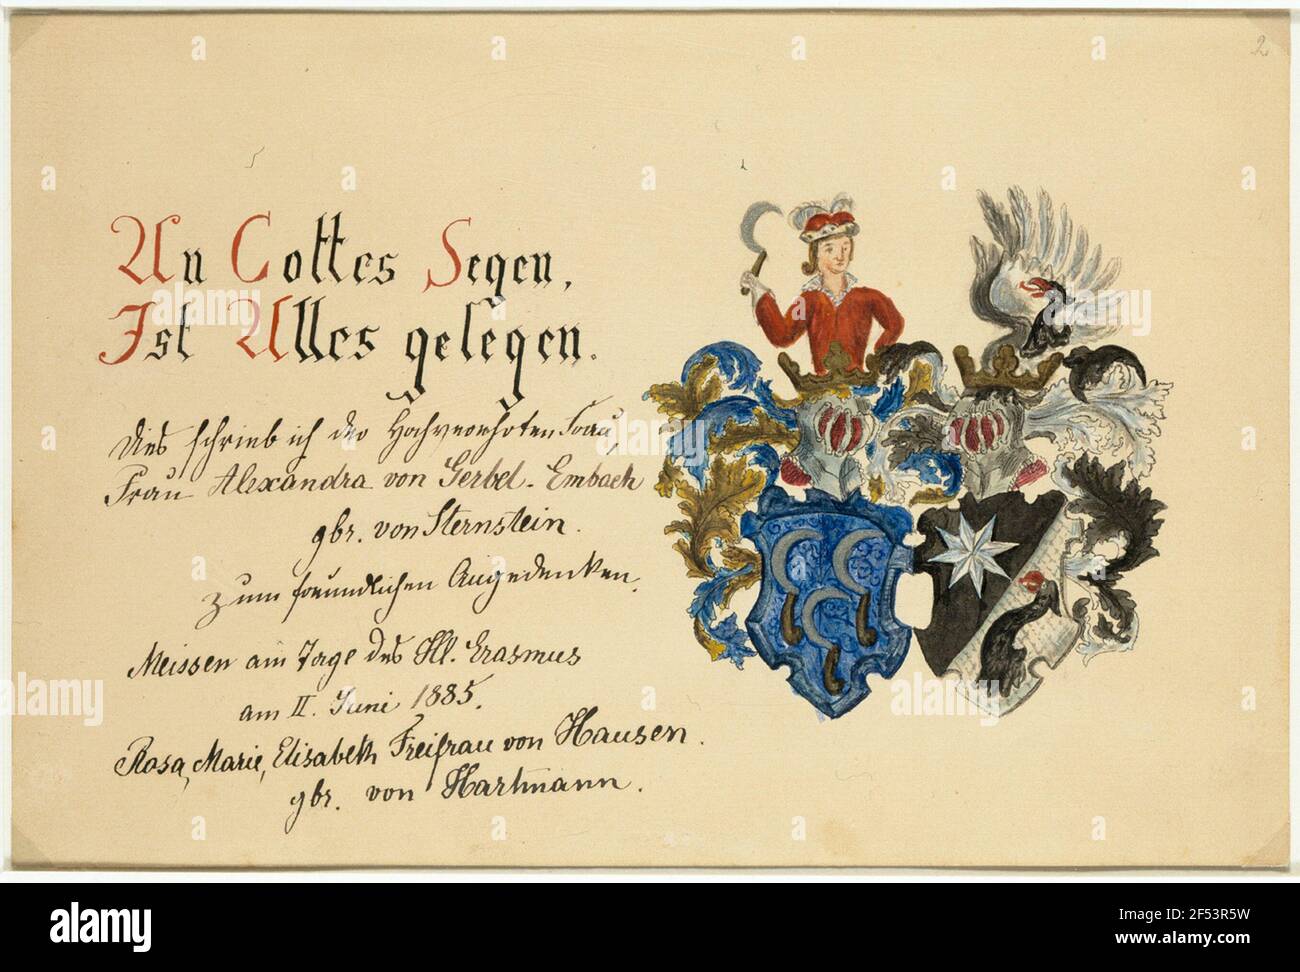 2
An Gottes Segen,
Ist Alles gelegen.
Dies schrieb ich der Hochverehrten Frau,
Frau Alexandra von Gerbel-Embach
gbr. von Sternstein.
zum freundlichen Angedenken.
Meissen am Tage des Hl. Erasmus
am II. Juni 1885.
Rosa, Marie, Elisabeth Freifrau von Hausen.
gbr. von Hartmann.
alamy
Image ID: 2F53R5W
www.alamy.com